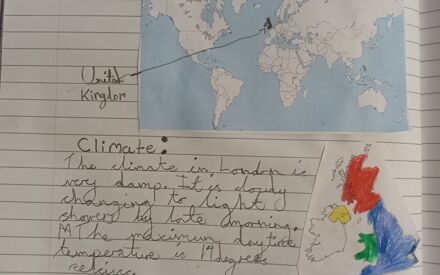 United
Kingdom
Climate:
The climate in London is
very damp. It is cloudy
changing to light
showers by late morning.
The maximum daytime
temperature is 19 degrees
celcius.